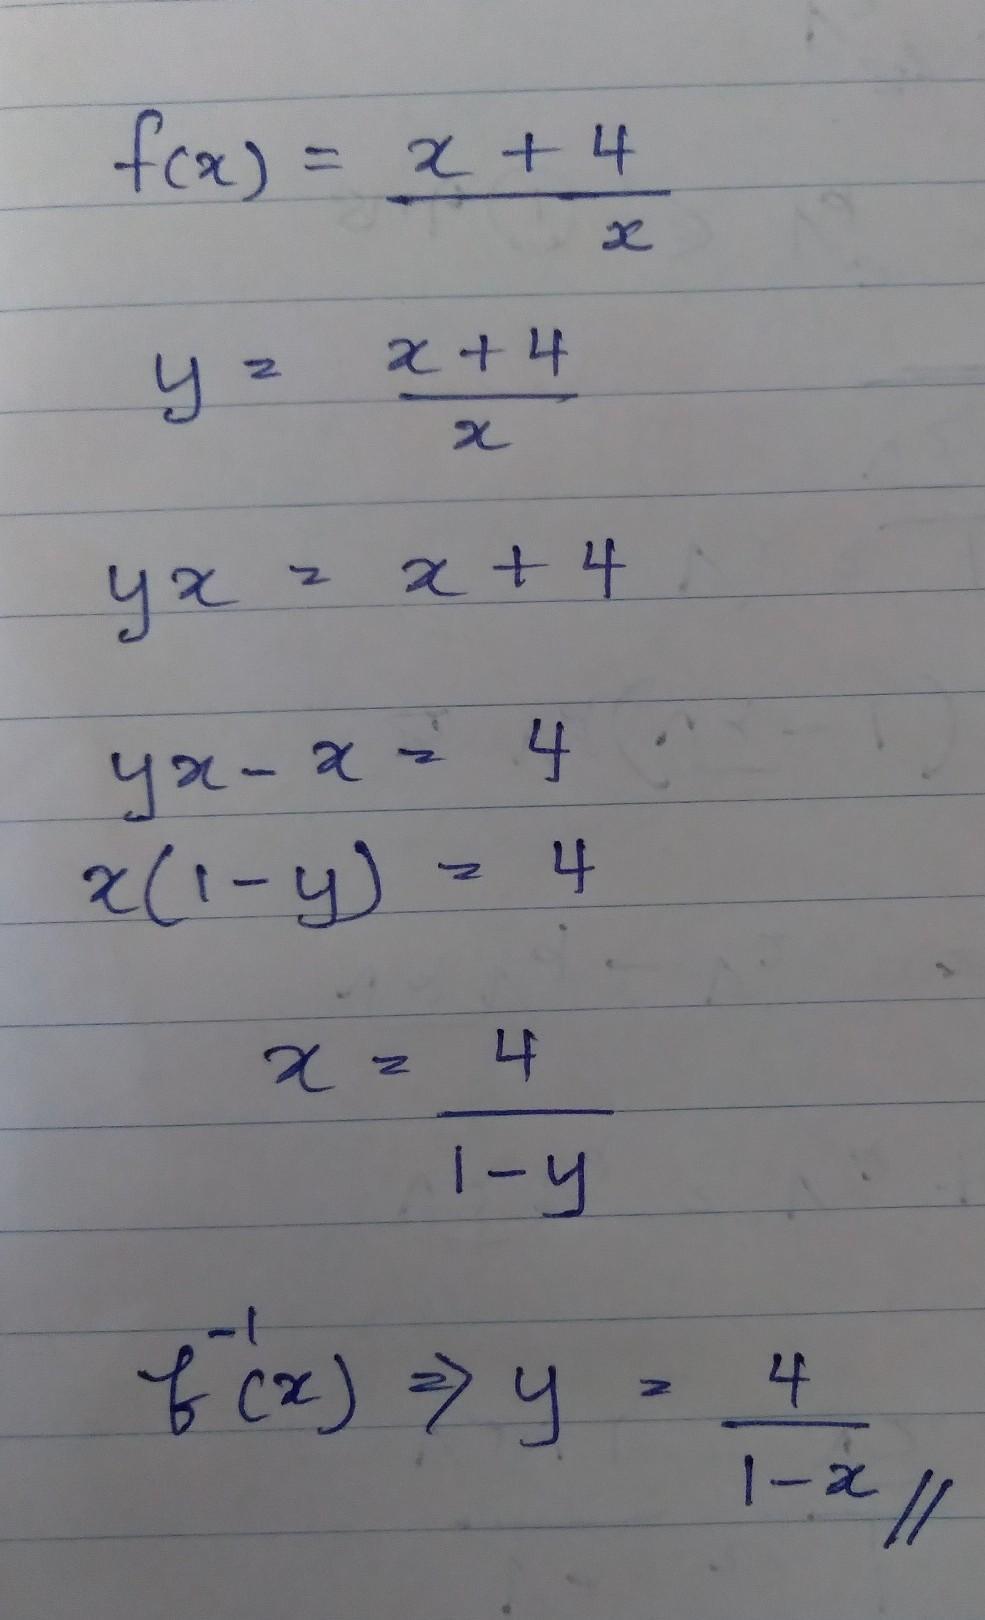 f(x) = x + 4
x
y = x + 4
x
yx = x + 4
yx - x = 4
x(1 - y) = 4
x = 4
1 - y
f⁻¹(x) ⇒ y = 4
1 - x //